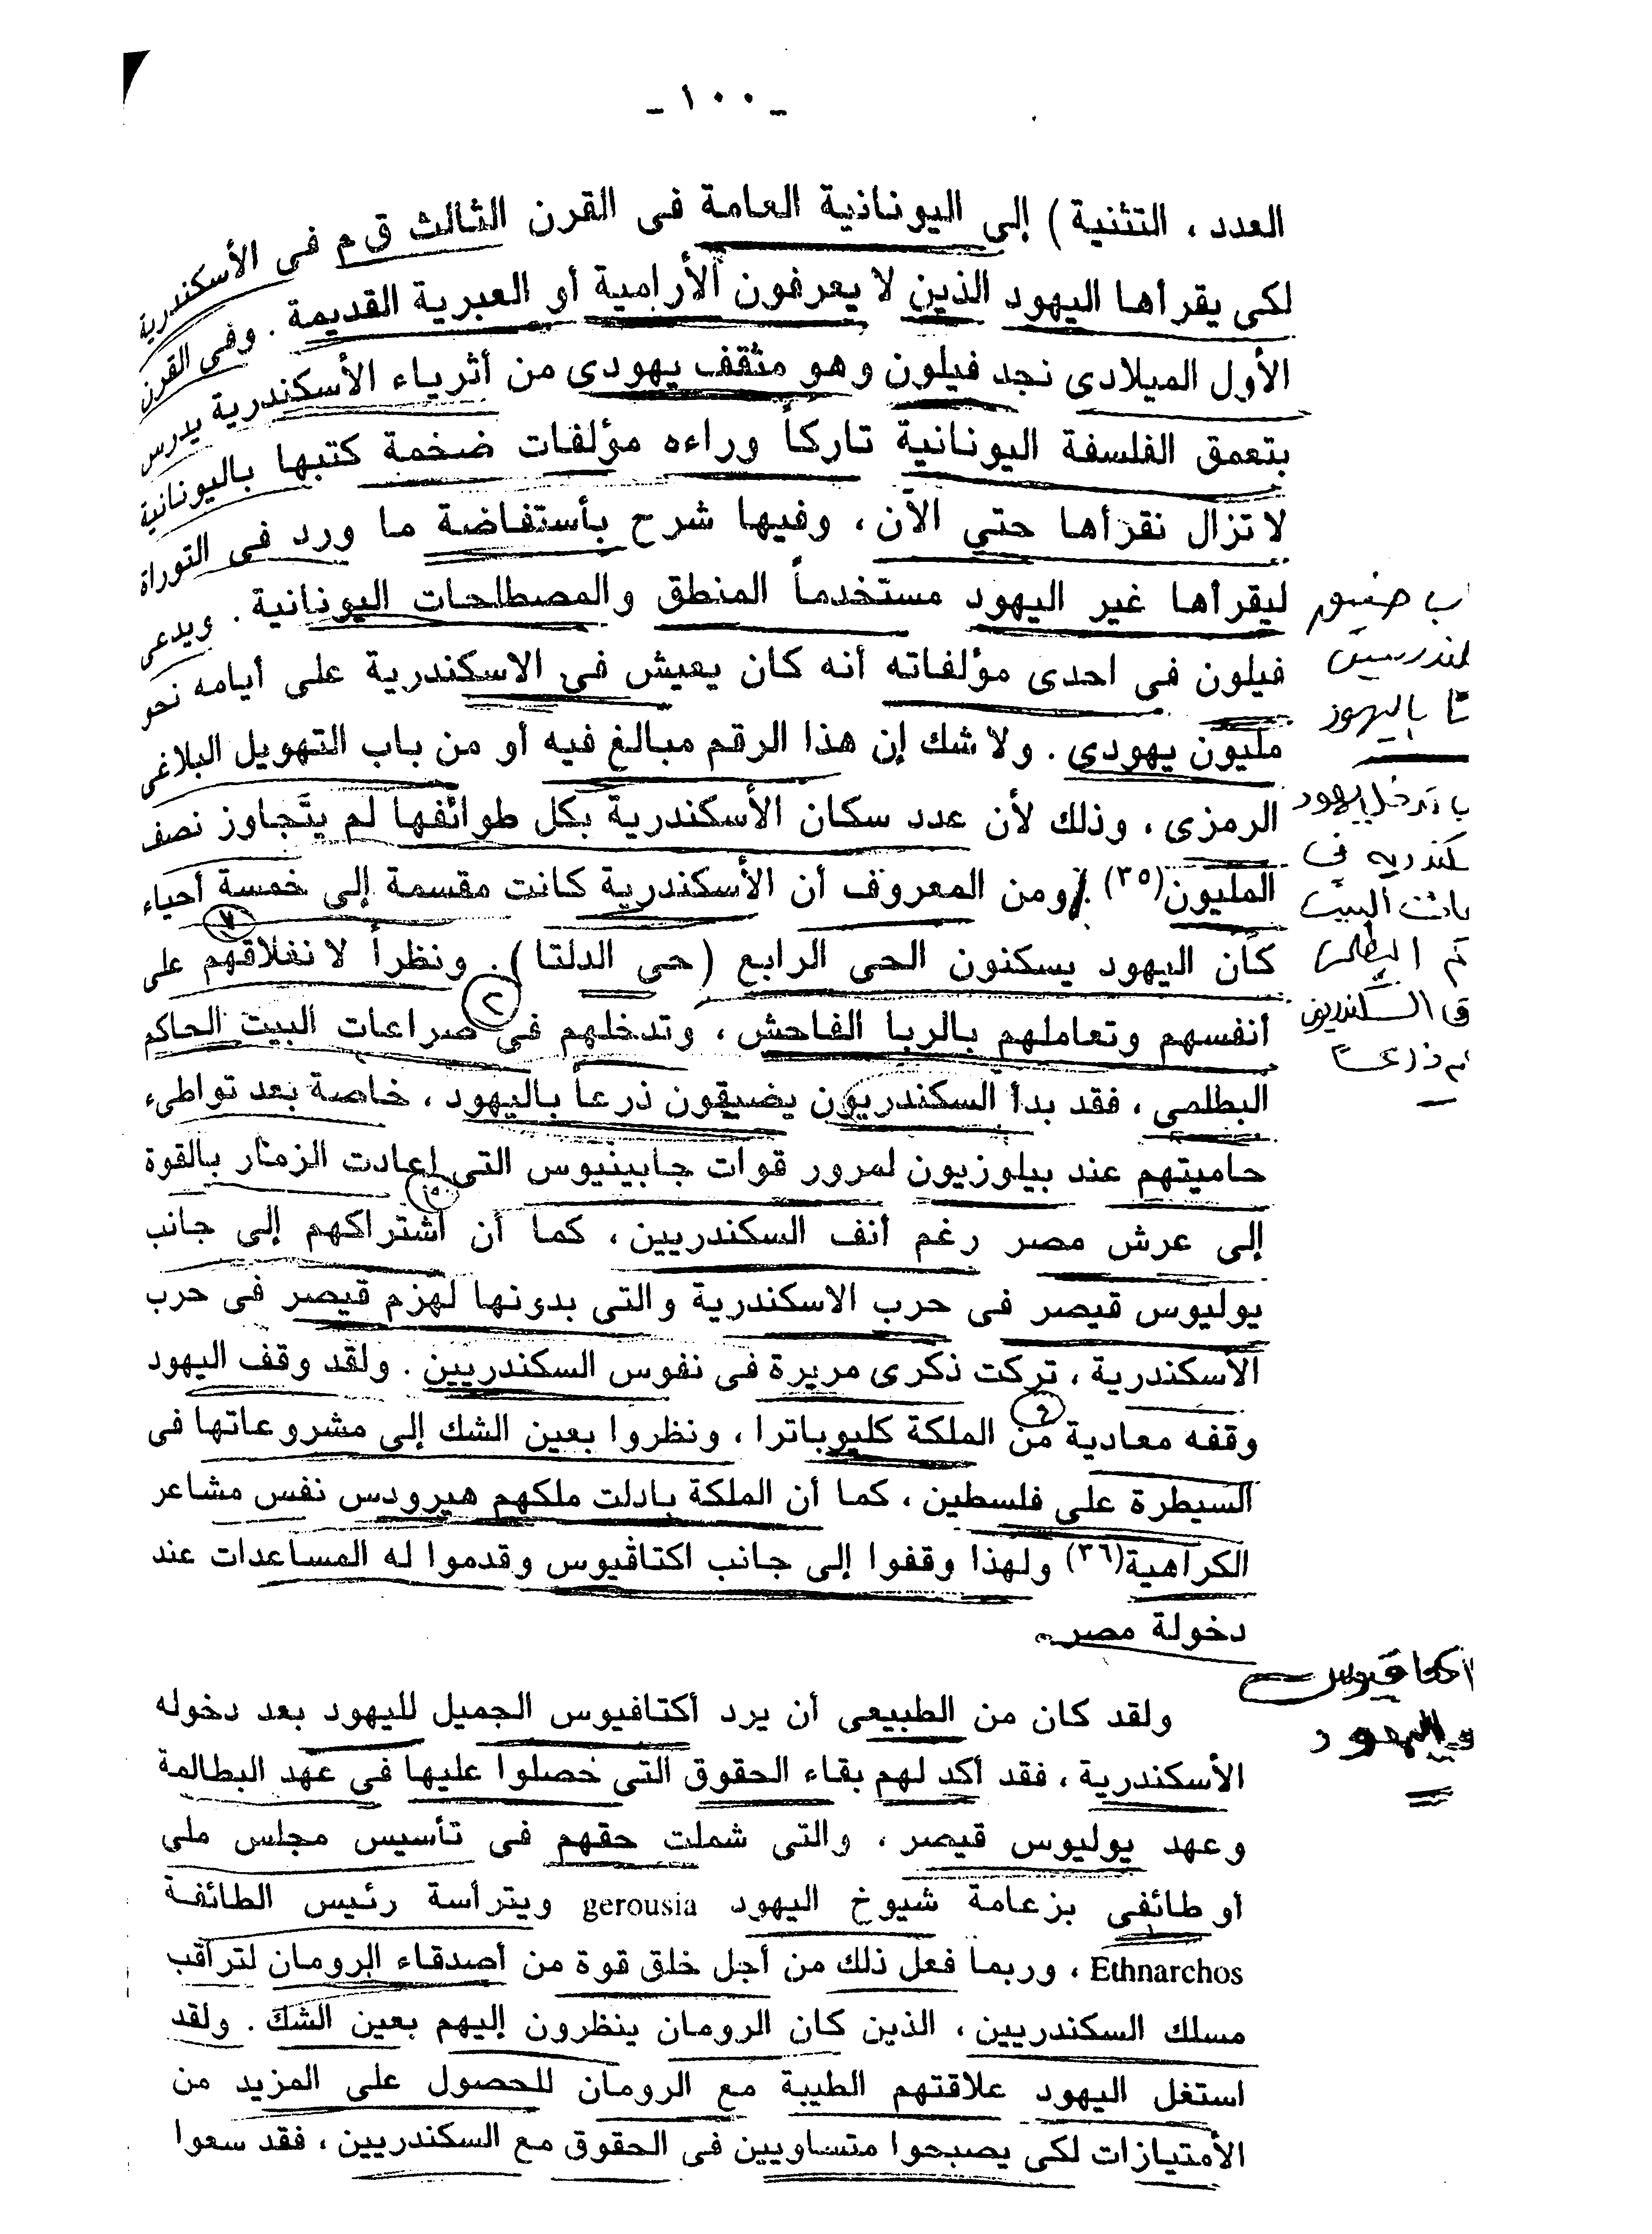 ـ ١٠٠ ـ
العدد ، التثنية ) إلى اليونانية العامة فى القرن الثالث ق م فى الأسكندرية
لكى يقرأها اليهود الذين لا يعرفون الأرامية أو العبرية القديمة . وفى القرن
الأول الميلادى نجد فيلون وهو مثقف يهودى من أثرياء الأسكندرية يدرس
بتعمق الفلسفة اليونانية تاركاً وراءه مؤلفات ضخمة كتبها باليونانية
لا تزال نقرأها حتى الآن ، وفيها شرح بأستفاضة ما ورد فى التوراة
ليقرأها غير اليهود مستخدماً المنطق والمصطلحات اليونانية . ويدعى
فيلون فى احدى مؤلفاته أنه كان يعيش فى الاسكندرية على أيامه نحو
مليون يهودى . ولا شك إن هذا الرقم مبالغ فيه أو من باب التهويل البلاغى
الرمزى ، وذلك لأن عدد سكان الأسكندرية بكل طوائفها لم يتجاوز نصف
المليون(٣٥) . ومن المعروف أن الأسكندرية كانت مقسمة إلى خمسة أحياء
كان اليهود يسكنون الحى الرابع (حى الدلتا) . ونظراً لانغلاقهم على
أنفسهم وتعاملهم بالربا الفاحش ، وتدخلهم فى صراعات البيت الحاكم
البطلمى ، فقد بدأ السكندريون يضيقون ذرعاً باليهود ، خاصة بعد تواطىء
حاميتهم عند بيلوزيون لمرور قوات جابينيوس التى إعادت الزمار بالقوة
إلى عرش مصر رغم أنف السكندريين ، كما أن اشتراكهم إلى جانب
يوليوس قيصر فى حرب الاسكندرية والتى بدونها لهزم قيصر فى حرب
الأسكندرية ، تركت ذكرى مريرة فى نفوس السكندريين . ولقد وقف اليهود
وقفه معادية من الملكة كليوباترا ، ونظروا بعين الشك إلى مشروعاتها فى
السيطرة على فلسطين ، كما أن الملكة بادلت ملكهم هيرودس نفس مشاعر
الكراهية(٣٦) ولهذا وقفوا إلى جانب اكتاڤيوس وقدموا له المساعدات عند
دخولة مصر .
اكتافيوس
واليهود
ولقد كان من الطبيعى أن يرد أكتافيوس الجميل لليهود بعد دخوله
الأسكندرية ، فقد أكد لهم بقاء الحقوق التى حصلوا عليها فى عهد البطالمة
وعهد يوليوس قيصر ، والتى شملت حقهم فى تأسيس مجلس ملى
أو طائفى بزعامة شيوخ اليهود gerousia ويترأسة رئيس الطائفة
Ethnarchos ، وربما فعل ذلك من أجل خلق قوة من أصدقاء الرومان لتراقب
مسلك السكندريين ، الذين كان الرومان ينظرون إليهم بعين الشك . ولقد
استغل اليهود علاقتهم الطيبة مع الرومان للحصول على المزيد من
الأمتيازات لكى يصبحوا متساويين فى الحقوق مع السكندريين ، فقد سعوا